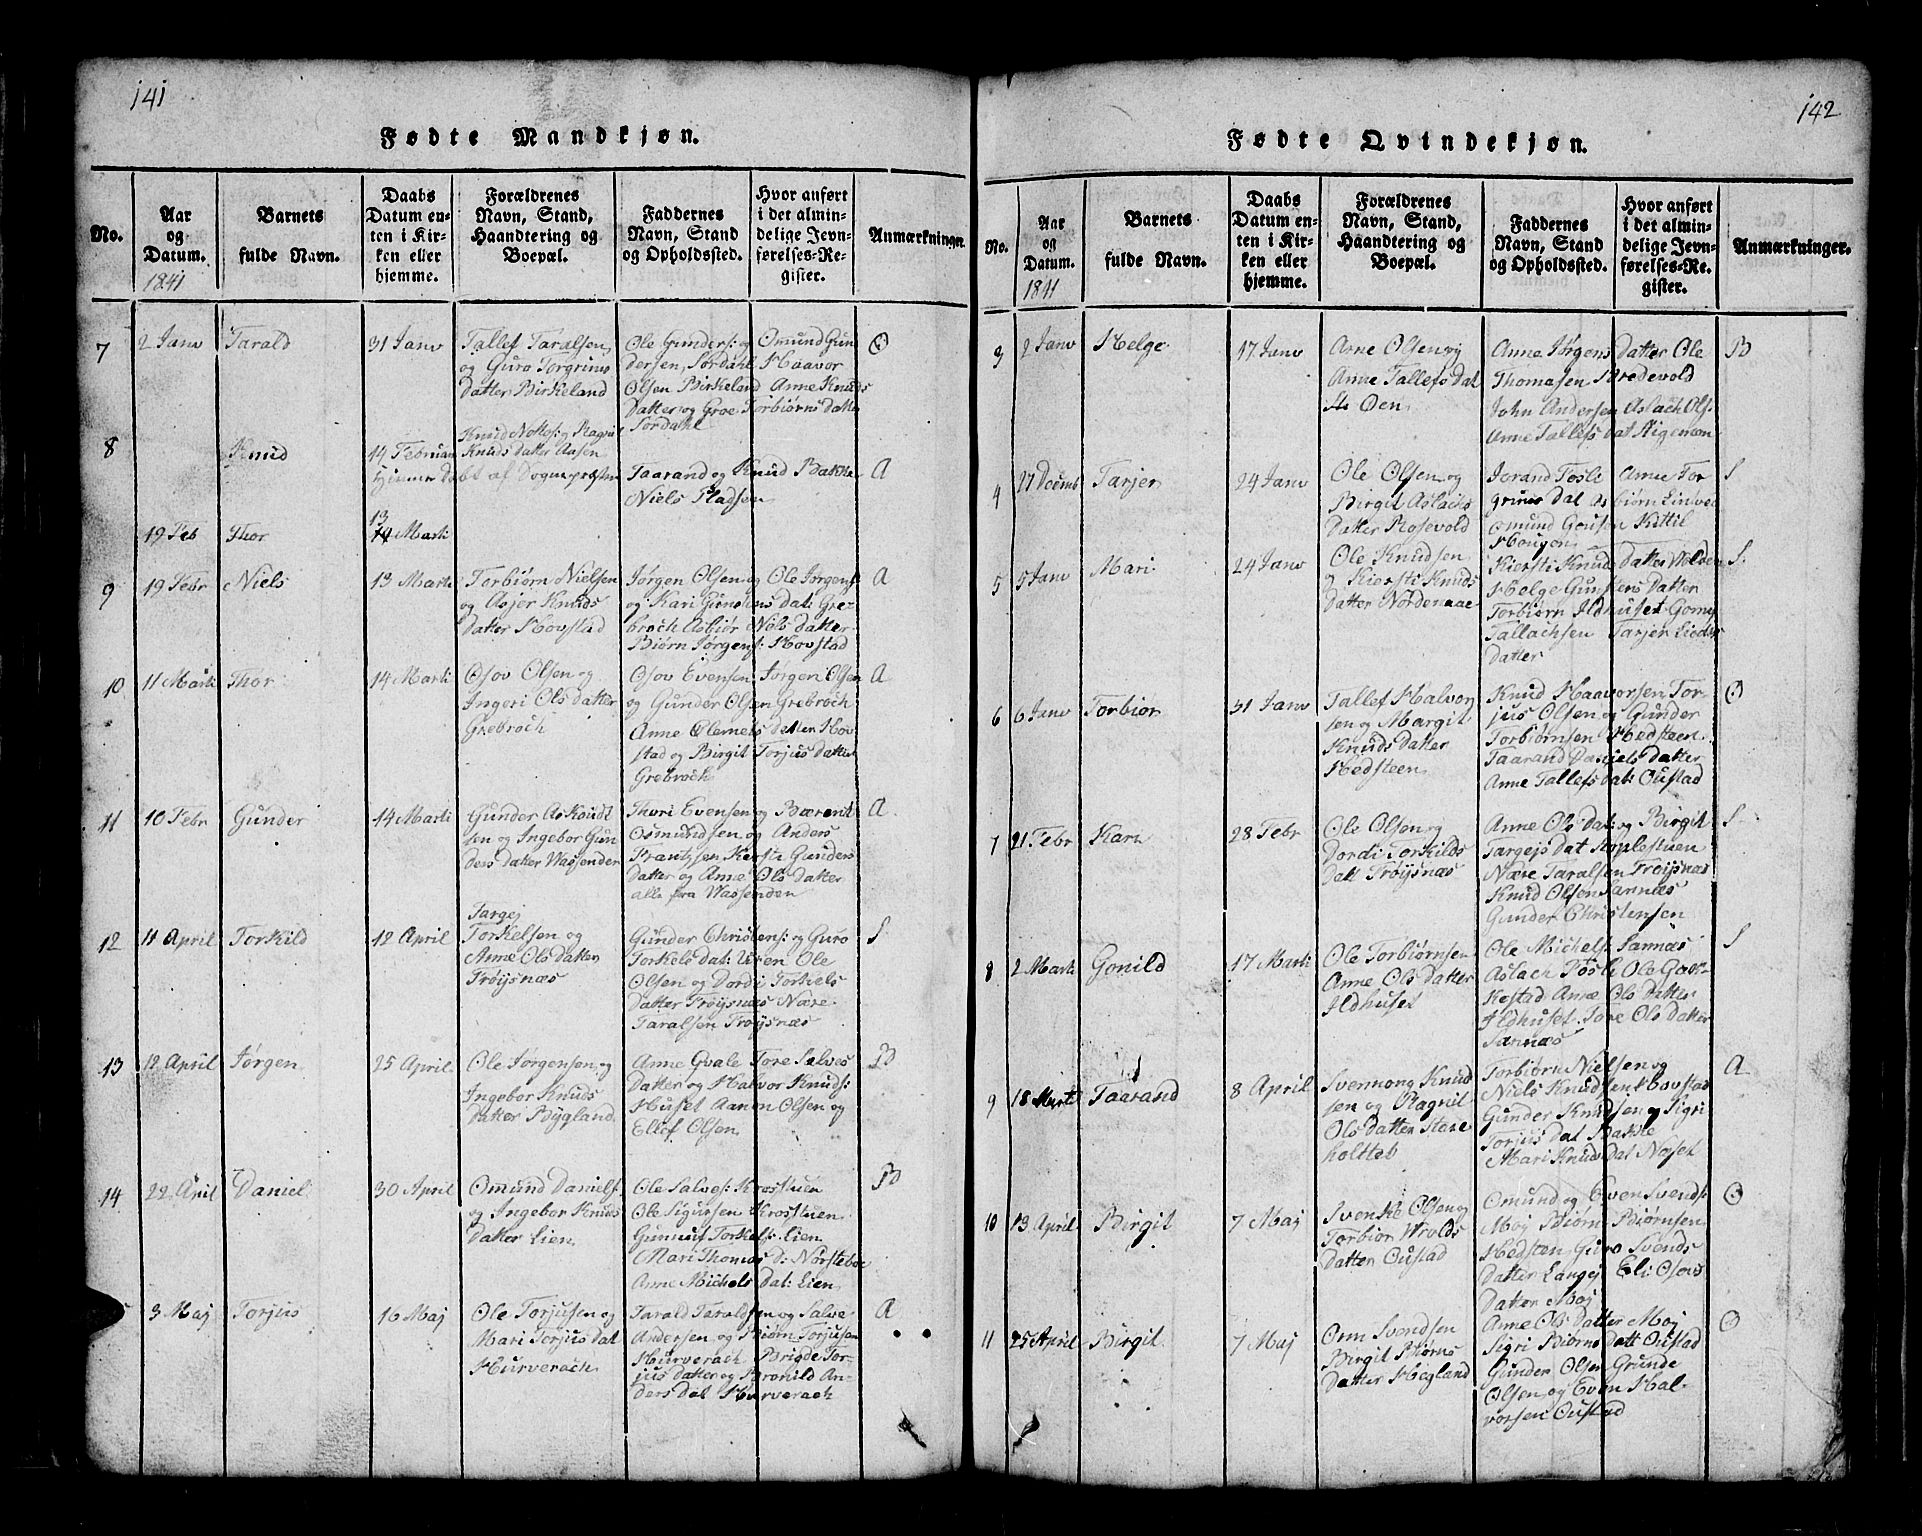 141
Fødte Mandkjøn.
No.
Aar
og
Datum.
1841
Barnets
fulde Navn.
Daabs
Datum en-
ten i Kir-
ken eller
hjemme.
Forældrenes
Navn, Stand,
Haandtering og
Boepæl.
Faddernes
Navn, Stand
og Opholdssted.
Hvor anført
i det almin-
delige Jevn-
førelses-Re-
gister.
Anmærkninger.
7
2 Janv
Tarald
31 Janv
Tallef Taralsen
og Guro Torgrims
Datter Birkeland
Ole Gunders: og Omund Gun
dersen, Tørdahl Haavor
Olsen Birkeland Anne Knuds
Datter og Groe Torbiørns Datter
Tørdahl
O
8
Knud
14 Februar
Knud Nokos: og Ragnil
Knuds Datter Aasen
Hjemme Døbt af Sognepræsten
Taarand og Knud Bakke
Niels Pladsen
A
19 Feb
Thor
13
14 Marti
9
19 Febr
Niels
13 Marti
Torbiørn Nielsen
og Asjer Knuds
Datter Hovstad
Jørgen Olsen og Ole Jørgens:
og Kari Gunstens dat: Gre-
broch Asbiør Nils datter
Biørn Jørgens: Hovstad
A
10
11 Marti
Thor
14 Marti
Osov Olsen og
Ingeri Ols datter
Grebroch
Osov Evensen Jørgen Olsen
og Gunder Olsen Grebroch
Anne Clemets datter Hov
stad og Birgit Torjus datter
Grebroch
A
11
10 Febr
Gunder
14 Marti
Gunder Asknudt
sen og Ingebor Gun
ders datter Wassenden
Thori Evensen og Bærent
Osmundsen og Anders
Frantzsen Kersti Gunders
datter og Anne Ols datter
alle fra Wassenden
A
12
11 April
Torkild
12 April
Targej
Torkelsen og
Anne Ols datter
Frøysnæs
Gunder Christens: og Guro
Torkels dat: Usen Ole
Olsen og Dordi Torkels
Datter Frøysnæs Nære
Taralsen Frøysnæs
S
13
12 April
Jørgen
25 April
Ole Jørgensen og
Ingebor Knuds
datter Bygland
Anne Qvale Tore Salves
Datter og Halvor Knuds:
Huset Aanon Olsen og
Ellef Olsen
B
14
22 April
Daniel
30 April
Omund Daniels:
og Ingebor Knuds
datter Lien
Ole Salves: Krostuen
Ole Sigursen Krostuen
Gunnuf Torkels: Lien
Mari Thomas D: Nørstebøe
Anne Michels dat: Lien
B
3 Maj
Torjus
16 Maj
Ole Torjusen og
Mari Torjus dat
Hurverach
Tarald Taraldsen og Salve
Andersen og Biørn Torjusen
Hurverach Brigde Tor-
jus datter og Bronild An-
ders dat Hurverach
A
142
Fødte Qvindekjøn.
No.
Aar
og
Datum.
1841
Barnets
fulde Navn.
Daabs
Datum en-
ten i Kir-
ken eller
hjemme.
Forældrenes
Navn, Stand,
Haandtering og
Boepæl.
Faddernes
Navn, Stand
og Opholdssted.
Hvor anført
i det almin-
delige Jevn-
førelses-Re-
gister.
Anmærkninger.
3
2 Janv
Helge
17 Janv
Arne Olsen og
Anne Tallefs Dat
Oen
Anne Jørgens Datter Ole
Thomasen Bredevold
John Andersen Aslach Ols:
Anne Tallefs dat
B
4
27 Decemb
Tarjer
24 Janv
Ole Olsen og
Birgit Aslachs
Datter Rosevold
Jorand Fosli Anne Tor
grims Dat Asbiørn
Omund Kittil
Hougen
S
5
5 Janv
Mari
24 Janv
Ole Knudsen
og Kiersti Knuds
Datter Nordenaae
Kiersti Knuds Datter
Helge Gunstens Datter
Torbiørn Ildhuset
Tallachsen Tarjer
datter
S.
6
6 Janv
Torbiør
31 Janv
Tallef Halvor
sen og Margit
Knuds Datter
Hedsteen
Knud Haavorsen Tor-
jus Olsen og Gunder
Torbiørnsen Hedsteen
Taarand Daniels Datter
Anne Tallefs dat: Oustad
O
7
21 Febr
Kari
28 Febr
Ole Olsen og
Dordi Torkilds
Datt Frøysnæs
Anne Ols dat: og Birgit
Targejs dat Stoplestuen
Nære Taralsen Frøysnæs
Knud Olsen Sannæs
Gunder Christensen
S
8
2 Marti
Gonild
17 Marti
Ole Torbiørnsen
Anne Ols datter
Ildhuset
Ole Michels: Sannæs
Aslach Føsli Ole
Anne Ols datter
Ildhuset Tore Ols datter
Sannæs
S
9
18 Marti
Taarand
8 April
Svennong Knud
sen og Ragnil
Ols datter Stare
holtteb
Torbiørn Nielsen og
Niels Knudsen Hovstad
Gunder Knudsen og Sigri
Torjus dat Bakke
Mari Knuds dat Noset
A
10
13 April
Birgit
7 Maj
Svenke Olsen og
Torbior Wrolds
Datter Oustad
Omund og Even Svends:
Moj Biørn Biørnsen
Hedsten Guro Svends
datter Langej Eli Osovs
Datter Moj
O
11
25 April
Birgit
7 Maj
Orm Svendsen
Birgit Biørns
Datter Hegland
Anne Ols datter Moj
Sigri Biørns datt Oustad
Gunder Olsen Grunde
Olsen og Even Hal-
vorsen Oustad
O